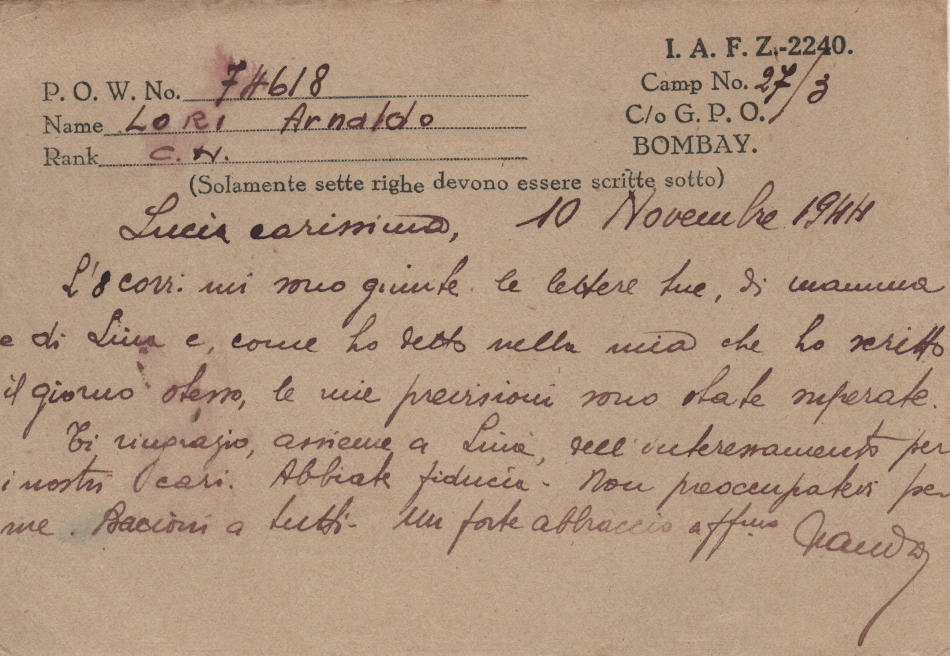 I. A. F. Z.-2240.
P. O. W. No. 74618
Camp No. 27/3
Name LORI Arnaldo
C/o G. P. O.
Rank C. N.
BOMBAY.
(Solamente sette righe devono essere scritte sotto)
Lucia carissima, 10 Novembre 1944
L'8 corr. mi sono giunte le lettere tue, di mamma
e di Lina e, come ho detto nella mia che ho scritto
il giorno stesso, le mie previsioni sono state superate.
Ti ringrazio, assieme a Lina, dell'interessamento per
i nostri cari. Abbiate fiducia. Non preoccupatevi per
me. Bacioni a tutti. Un forte abbraccio affmo